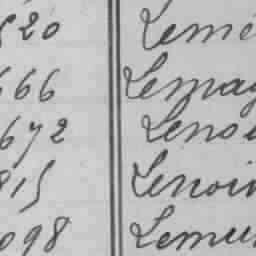 520 Lemé
666 Lemag
672 Lenoi
815 Lenoir
098 Lemeu